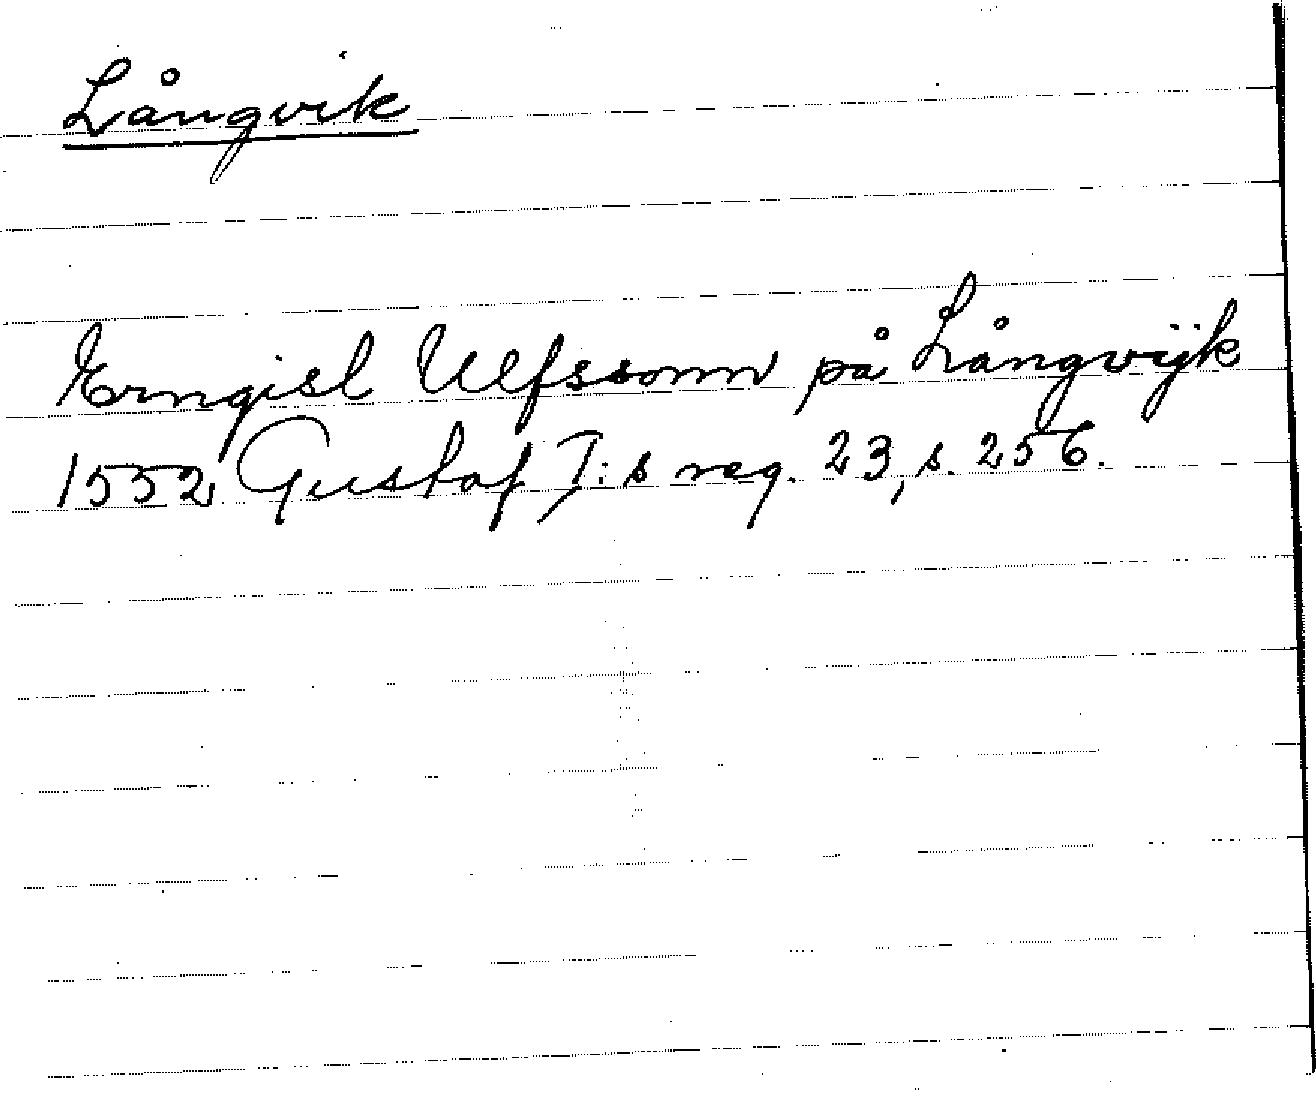 Långvik
Erngisl Ulfssonn på Långvijk
1552 Gustaf I:s reg. 23, s. 256.